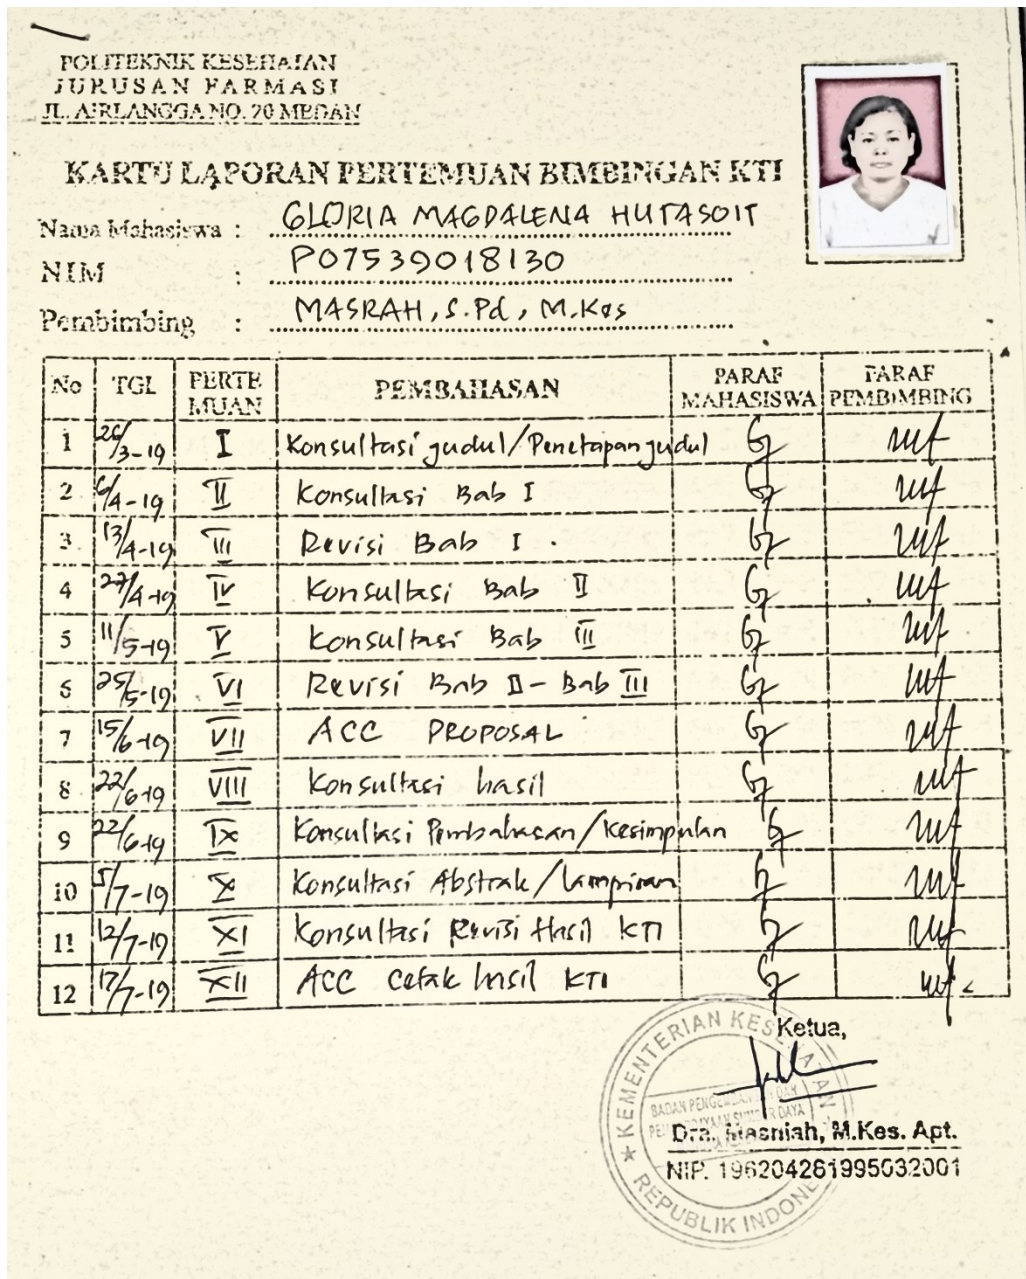 POLITEKNIK KESEHATAN
JURUSAN FARMASI
JL. AIRLANGGA NO. 20 MEDAN
KARTU LAPORAN PERTEMUAN BIMBINGAN KTI
Nama Mahasiswa : GLORIA MAGDALENA HUTASOIT
NIM : P07539018130
Pembimbing : MASRAH, S.Pd, M.Kes
No TGL PERTE MUAN PEMBAHASAN PARAF MAHASISWA PARAF PEMBIMBING
1 26/3-19 I Konsultasi judul/Penetapan judul
2 6/4-19 II Konsultasi Bab I
3. 13/4-19 III Revisi Bab I .
4 27/4-19 IV Konsultasi Bab II
5 11/5-19 V Konsultasi Bab III
6 25/5-19 VI Revisi Bab II - Bab III
7 15/6-19 VII ACC PROPOSAL
8 22/6-19 VIII Konsultasi hasil
9 22/6-19 IX Konsultasi Pembahasan/Kesimpulan
10 5/7-19 X Konsultasi Abstrak/Lampiran
11 12/7-19 XI Konsultasi Revisi Hasil KTI
12 17/7-19 XII ACC Cetak hasil KTI
Ketua,
KEMENTERIAN KESEHATAN
BADAN PENGEMBANGAN DAN
PEMBERDAYAAN SUMBER DAYA
REPUBLIK INDONESIA
Dra. Masniah, M.Kes. Apt.
NIP. 196204281995032001